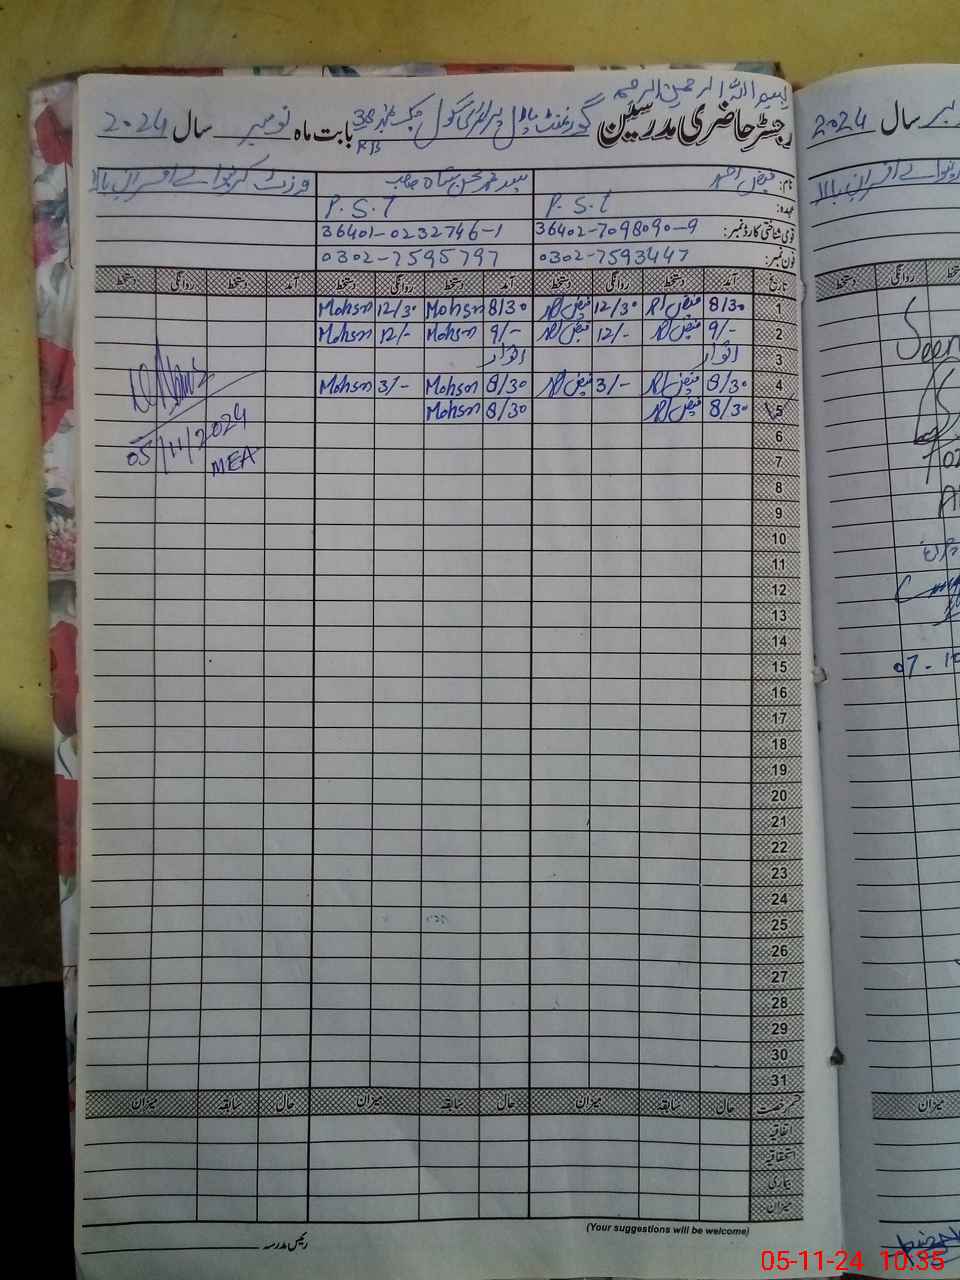 بسم اللہ الرحمن الرحیم
رجسٹر حاضری مدرسین گورنمنٹ ماڈل پرائمری سکول چک نمبر 38 بابت ماہ نومبر سال 2024
KB
نام: فیض احمد سید محمد محسن شاہ صاحب وزٹ کرنیوالے افسران بالا
عہدہ: P.S.T P.S.T
قومی شناختی کارڈ نمبر: 36402-7098090-9 36401-0232746-1
فون نمبر: 0302-7593447 0302-7595797
تاریخ آمد دستخط روانگی دستخط آمد دستخط روانگی دستخط آمد دستخط روانگی دستخط
1 8/30 فیض احمد 12/30 فیض احمد 8/30 Mohsin 12/30 Mohsin
2 9/- فیض احمد 12/- فیض احمد 9/- Mohsin 12/- Mohsin
3 اتوار اتوار
4 8/30 فیض احمد 3/- فیض احمد 8/30 Mohsin 3/- Mohsin
5 8/30 فیض احمد 8/30 Mohsin
05/11/2024
MEA
6
7
8
9
10
11
12
13
14
15
16
17
18
19
20
21
22
23
24
25
26
27
28
29
30
31
قسم رخصت حال سابقہ میزان حال سابقہ میزان حال سابقہ میزان
اتفاقیہ
استحقاقیہ
بیماری
میزان
(Your suggestions will be welcome)
رئیس مدرسہ
سال 2024
افسران بالا
روانگی دستخط
Seen
07-10
میزان
05-11-24 10:35